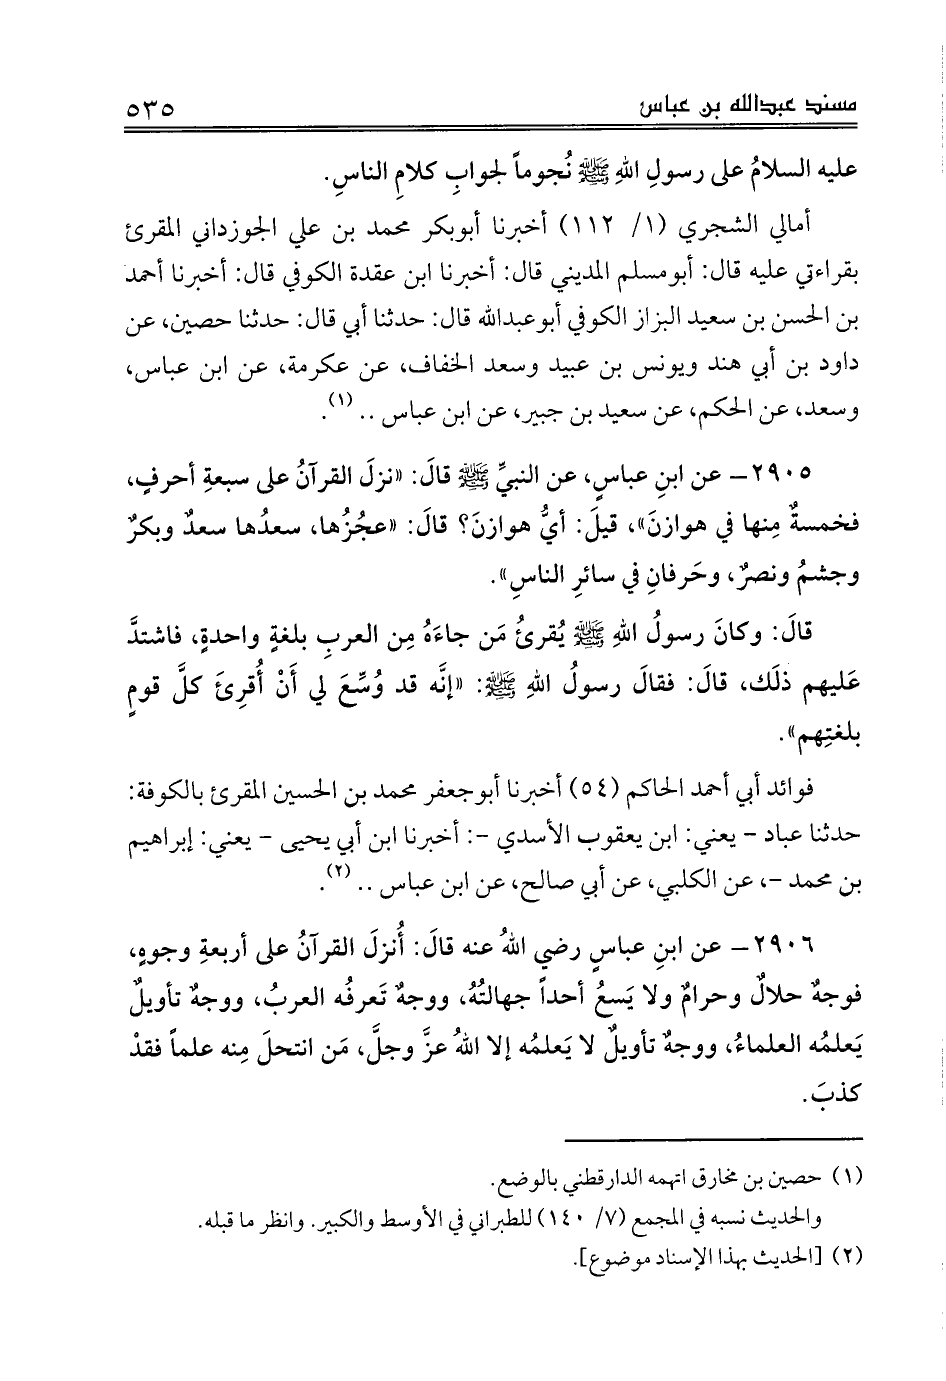 مسند عبدالله بن عباس ٥٣٥
عليه السلامُ على رسولِ اللهِ ﷺ نُجوماً لجوابِ كلامِ الناسِ.
أمالي الشجري (١/ ١١٢) أخبرنا أبوبكر محمد بن علي الجوزداني المقرئ
بقراءتي عليه قال: أبومسلم المديني قال: أخبرنا ابن عقدة الكوفي قال: أخبرنا أحمد
بن الحسن بن سعيد البزاز الكوفي أبوعبدالله قال: حدثنا أبي قال: حدثنا حصين، عن
داود بن أبي هند ويونس بن عبيد وسعد الخفاف، عن عكرمة، عن ابن عباس،
وسعد، عن الحكم، عن سعيد بن جبير، عن ابن عباس .. (١).
٢٩٠٥ – عن ابنِ عباسٍ، عن النبيِّ ﷺ قالَ: «نزلَ القرآنُ على سبعةِ أحرفٍ،
فخمسةٌ مِنها في هوازنَ»، قيلَ: أيُّ هوازنَ؟ قالَ: «عجُزُها، سعدُها سعدٌ وبكرٌ
وجشمُ ونصرٌ، وحَرفانِ في سائرِ الناسِ».
قالَ: وكانَ رسولُ اللهِ ﷺ يُقرئُ مَن جاءَهُ مِن العربِ بلغةٍ واحدةٍ، فاشتدَّ
عَليهم ذلَك، قالَ: فقالَ رسولُ اللهِ ﷺ: «إنَّه قد وُسِّعَ لي أَنْ أُقرِئَ كلَّ قومٍ
بلغتِهم».
فوائد أبي أحمد الحاكم (٥٤) أخبرنا أبوجعفر محمد بن الحسين المقرئ بالكوفة:
حدثنا عباد – يعني: ابن يعقوب الأسدي –: أخبرنا ابن أبي يحيى – يعني: إبراهيم
بن محمد –، عن الكلبي، عن أبي صالح، عن ابن عباس .. (٢).
٢٩٠٦ – عن ابنِ عباسٍ رضي اللهُ عنه قالَ: أُنزلَ القرآنُ على أربعةِ وجوهٍ،
فوجهٌ حلالٌ وحرامٌ ولا يَسعُ أحداً جهالتُهُ، ووجهٌ تَعرفُه العربُ، ووجهٌ تأويلٌ
يَعلمُه العلماءُ، ووجهٌ تأويلٌ لا يَعلمُه إلا اللهُ عزَّ وجلَّ، مَن انتحلَ مِنه علماً فقدْ
كذبَ.
(١) حصين بن مخارق اتهمه الدارقطني بالوضع.
والحديث نسبه في المجمع (٧/ ١٤٠) للطبراني في الأوسط والكبير. وانظر ما قبله.
(٢) [الحديث بهذا الإسناد موضوع].